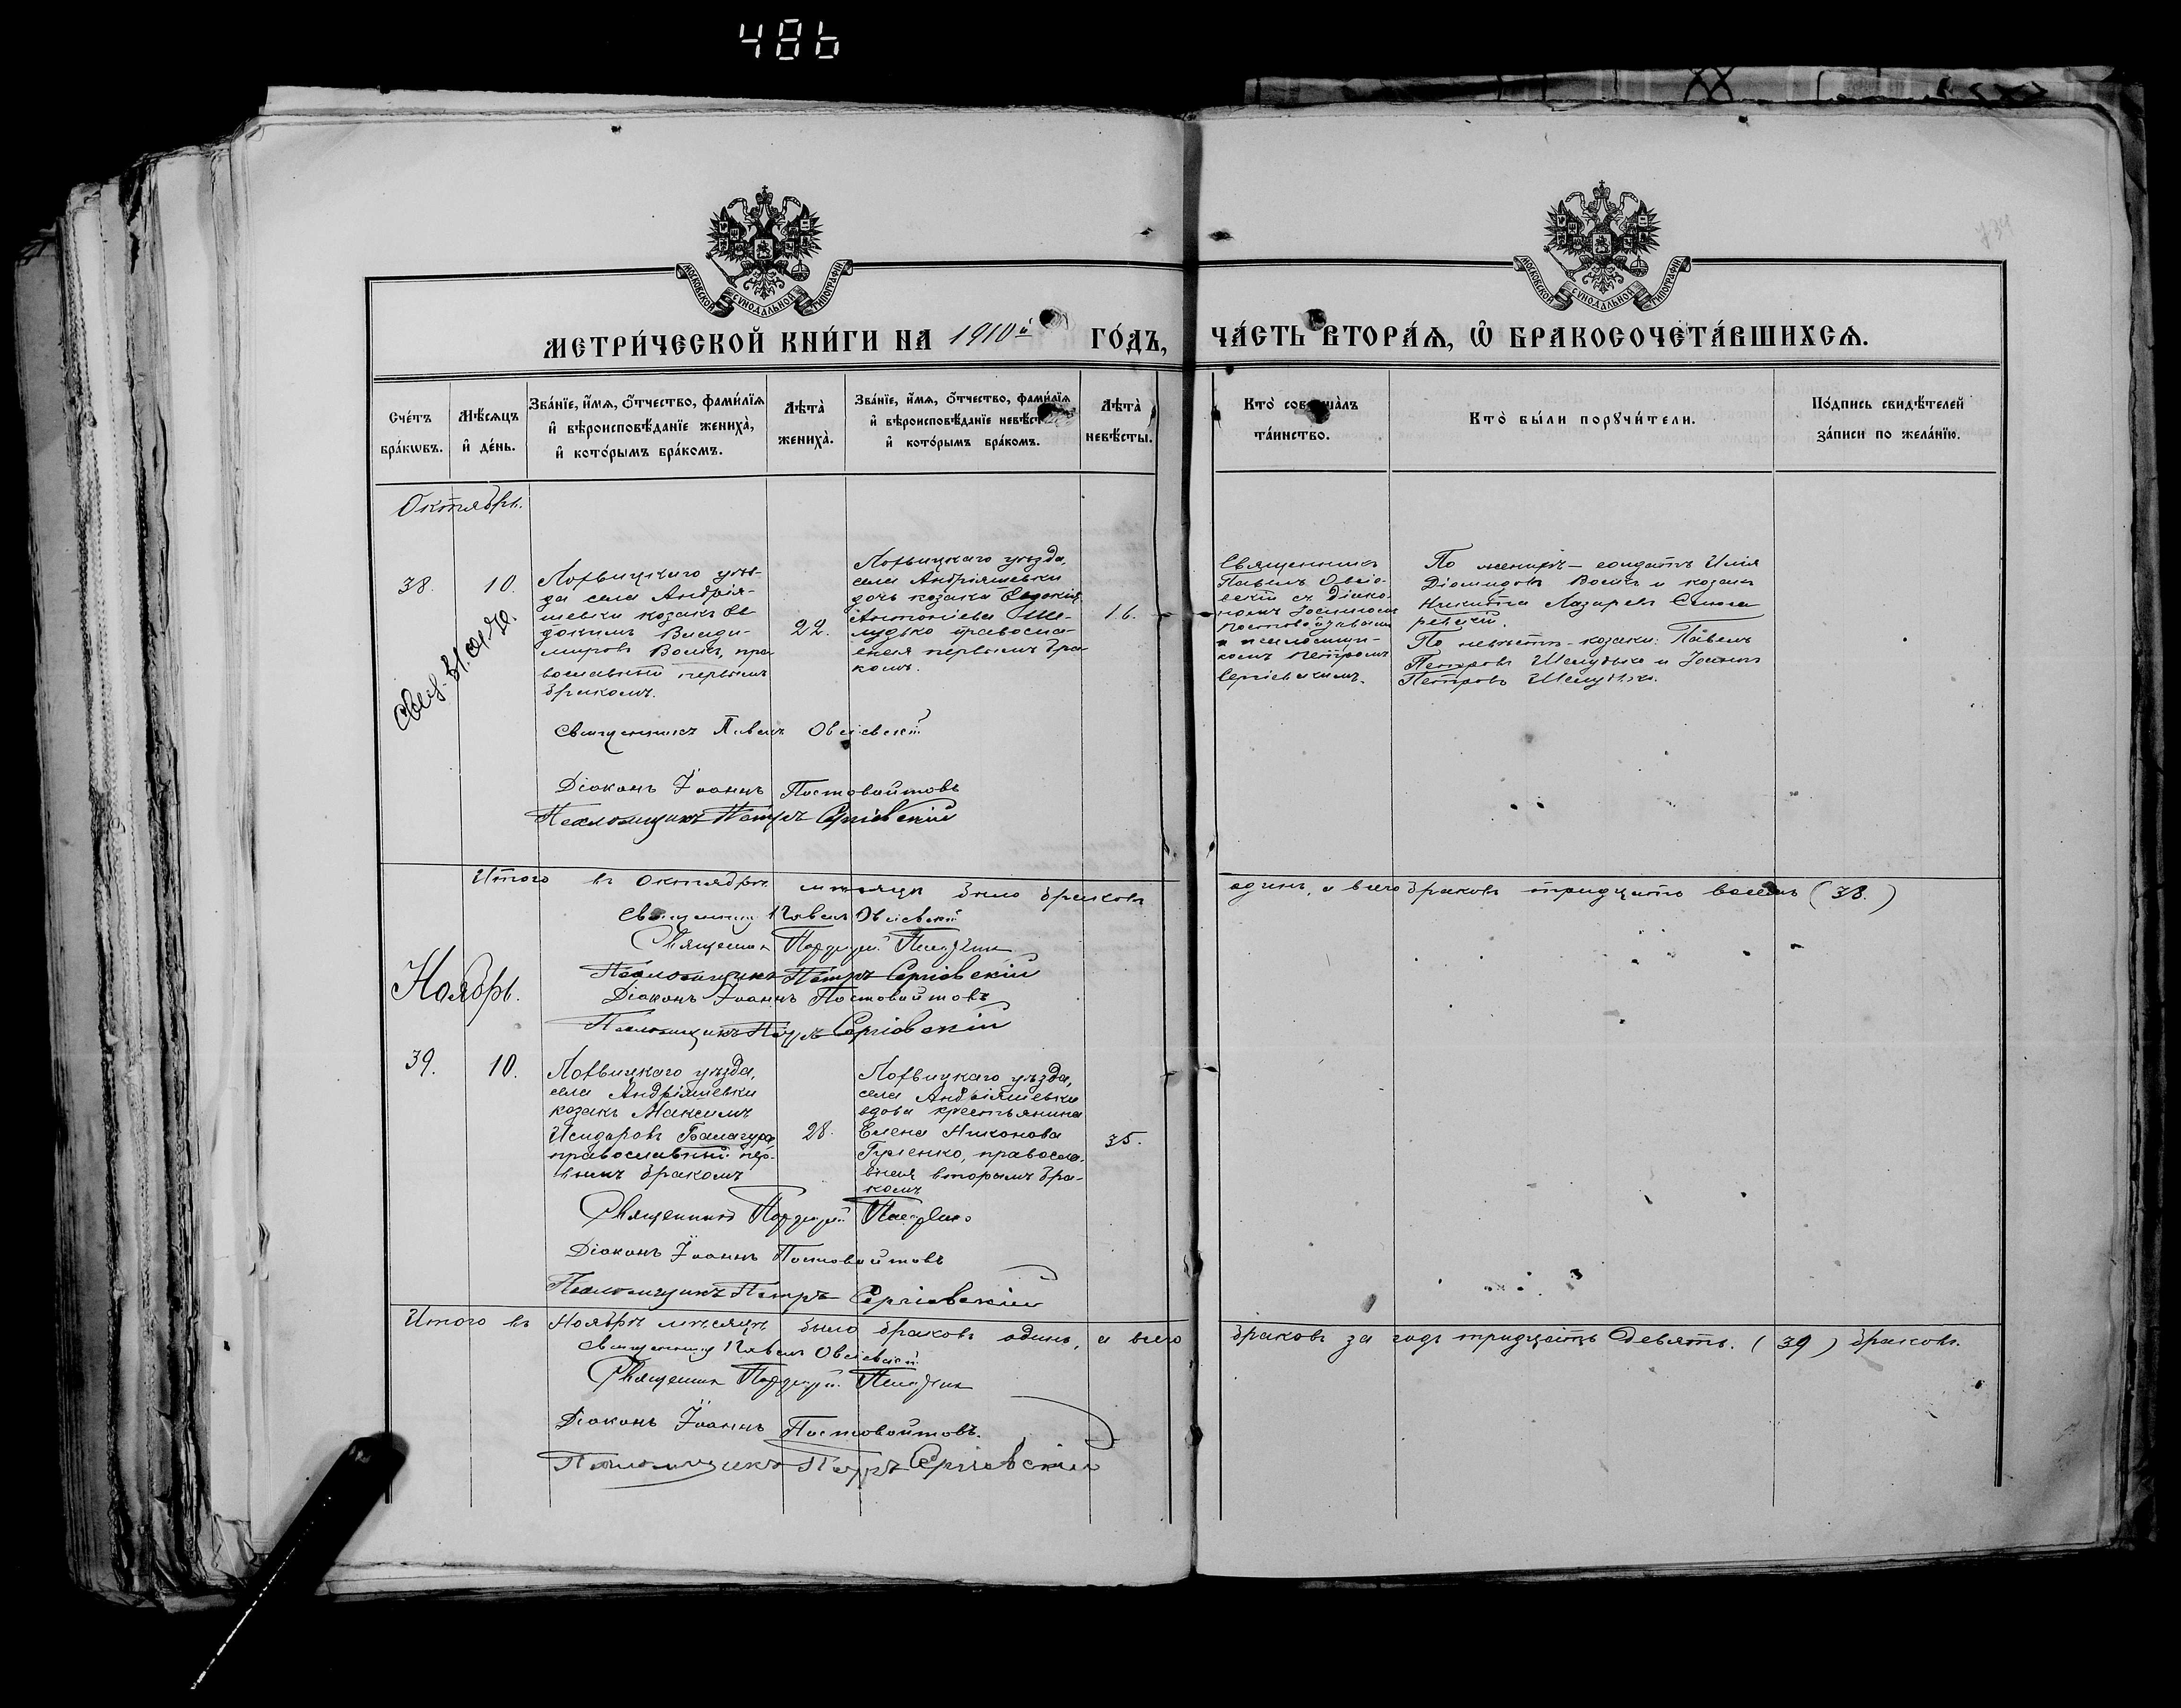 486
МОСКОВСКОЙ СУНОДАЛЬНОЙ ТИПОГРАФІИ
МОСКОВСКОЙ СУНОДАЛЬНОЙ ТИПОГРАФІИ
МЕТРИ́ЧЕСКОЙ КНИ́ГИ НА 1910й ГО́ДЪ,
ЧА́СТЬ ВТОРА́Ѧ, Ѡ҆ БРАКОСОЧЕТА́ВШИХСѦ.
Сче́тъ
бра́кѡвъ.
Мѣ́сѧцъ
и҆ де́нь.
Зва́нїе, и҆́мѧ, ѻ҆́тчество, фами́лїѧ
и҆ вѣроисповѣ́данїе жениха̀,
и҆ кото́рымъ бра́комъ.
Лѣта̀
жениха̀.
Зва́нїе, и҆́мѧ, ѻ҆́тчество, фами́лїѧ
и҆ вѣроисповѣ́данїе невѣ́сты
и҆ кото́рымъ бра́комъ.
Лѣта̀
невѣ́сты.
Кто̀ соверша̀лъ
та́инство.
Кто̀ бы́ли порꙋчи́тели.
По́дпись свидѣ́телей
за́писи по жела́нїю.
Октябрь.
38.
10.
Лохвицкаго уѣз-
да села Андрія-
шевки козакъ Ев-
докимъ Влади-
міровъ Вовкъ, пра-
вославный первымъ
бракомъ.
22.
Лохвицкаго уѣзда,
села Андріяшевки
дочь козака Евдокія
Антоніева Ше-
лудько православ-
ная первымъ бра-
комъ.
16.
Священникъ
Павелъ Овсіев-
скій съ діако-
номъ Іоанномъ
Постовойтовымъ
и псаломщи-
комъ Петромъ
Сергіевскимъ.
По женихѣ – солдатъ Илія
Діомидовъ Вовкъ и козакъ
Никита Лазаревъ
По невѣстѣ – козаки: Павелъ
Петровъ Шелудько и Іоаннъ
Петровъ Шелудько.
Священникъ Павелъ Овсіевскій
Діаконъ Іоаннъ Постовойтовъ
Псаломщикъ Петръ Сергіевскій
Итого въ Октябрѣ мѣсяцѣ было браковъ одинъ, а всего браковъ тридцать восемь (38.)
Священникъ Павелъ Овсіевскій
Священник
Псаломщикъ Петръ Сергіевскій
Діаконъ Іоаннъ Постовойтовъ
Псаломщикъ Петръ Сергіевскій
Ноябрь.
39.
10.
Лохвицкаго уѣзда,
села Андріяшевки
козакъ Максимъ
Исидоровъ Балагура
православный пер-
вымъ бракомъ
28.
Лохвицкаго уѣзда,
села Андріяшевки
вдова крестьянина
Елена Никонова
православ-
ная вторымъ бра-
комъ
35.
Священникъ
Діаконъ Іоаннъ Постовойтовъ
Псаломщикъ Петръ Сергіевскій
Итого въ Ноябрѣ мѣсяцѣ было браковъ одинъ, а всего браковъ за годъ тридцать девять. (39) браковъ.
Священникъ Павелъ Овсіевскій
Священник
Діаконъ Іоаннъ Постовойтовъ.
Псаломщикъ Петръ Сергіевскій